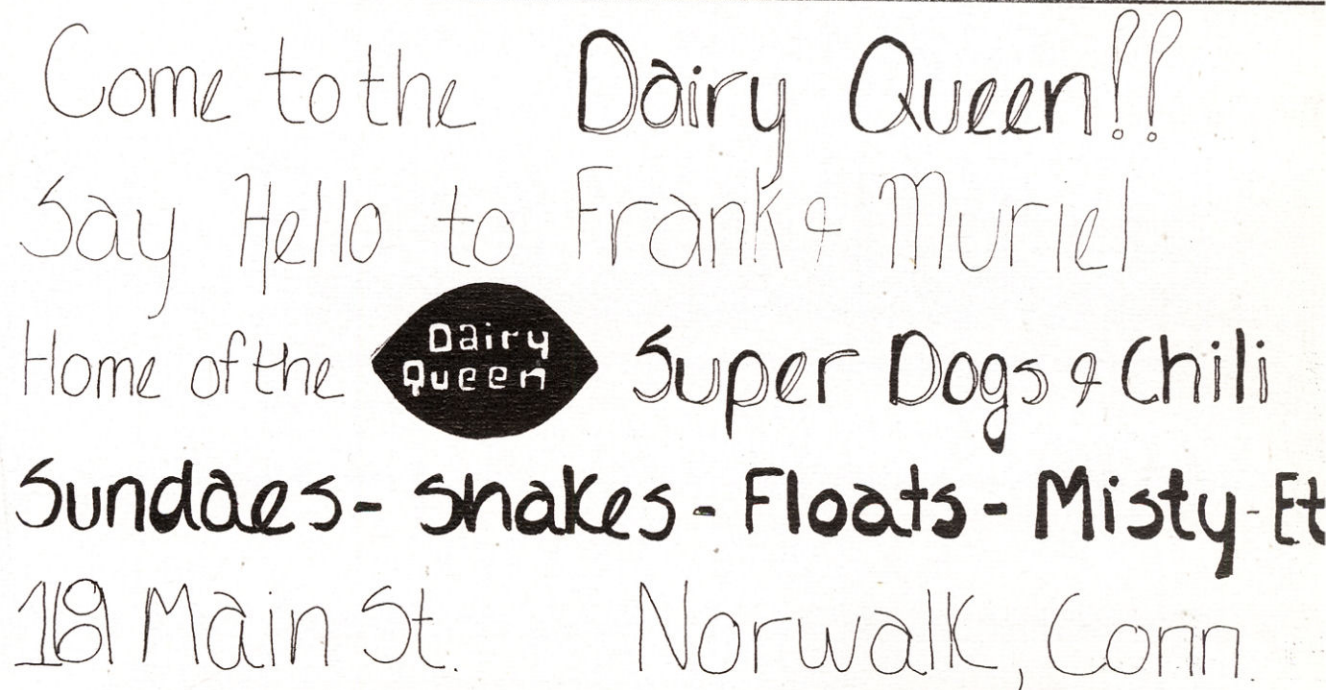 Come to the Dairy Queen!!
Say Hello to Frank & Muriel
Home of the Dairy Queen Super Dogs & Chili
Sundaes - Shakes - Floats - Misty - Et
169 Main St. Norwalk, Conn.